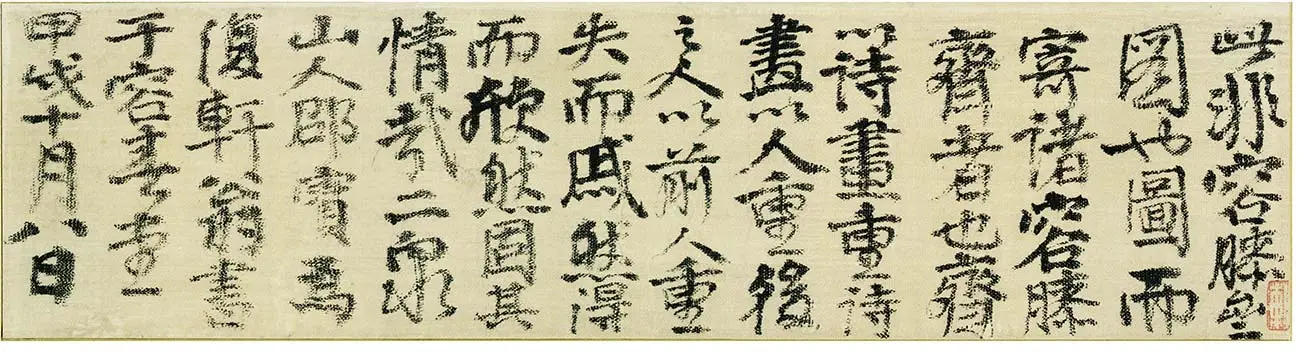 此非容膝齋
圖也圖而
寄諸容膝
齋者也齋
以詩畫重詩
畫以人重後
之人以前人重
失而戚然得
而欣然固其
情哉二泉
山人邵寶為
復軒翁書
于容春堂
甲戌十月八日